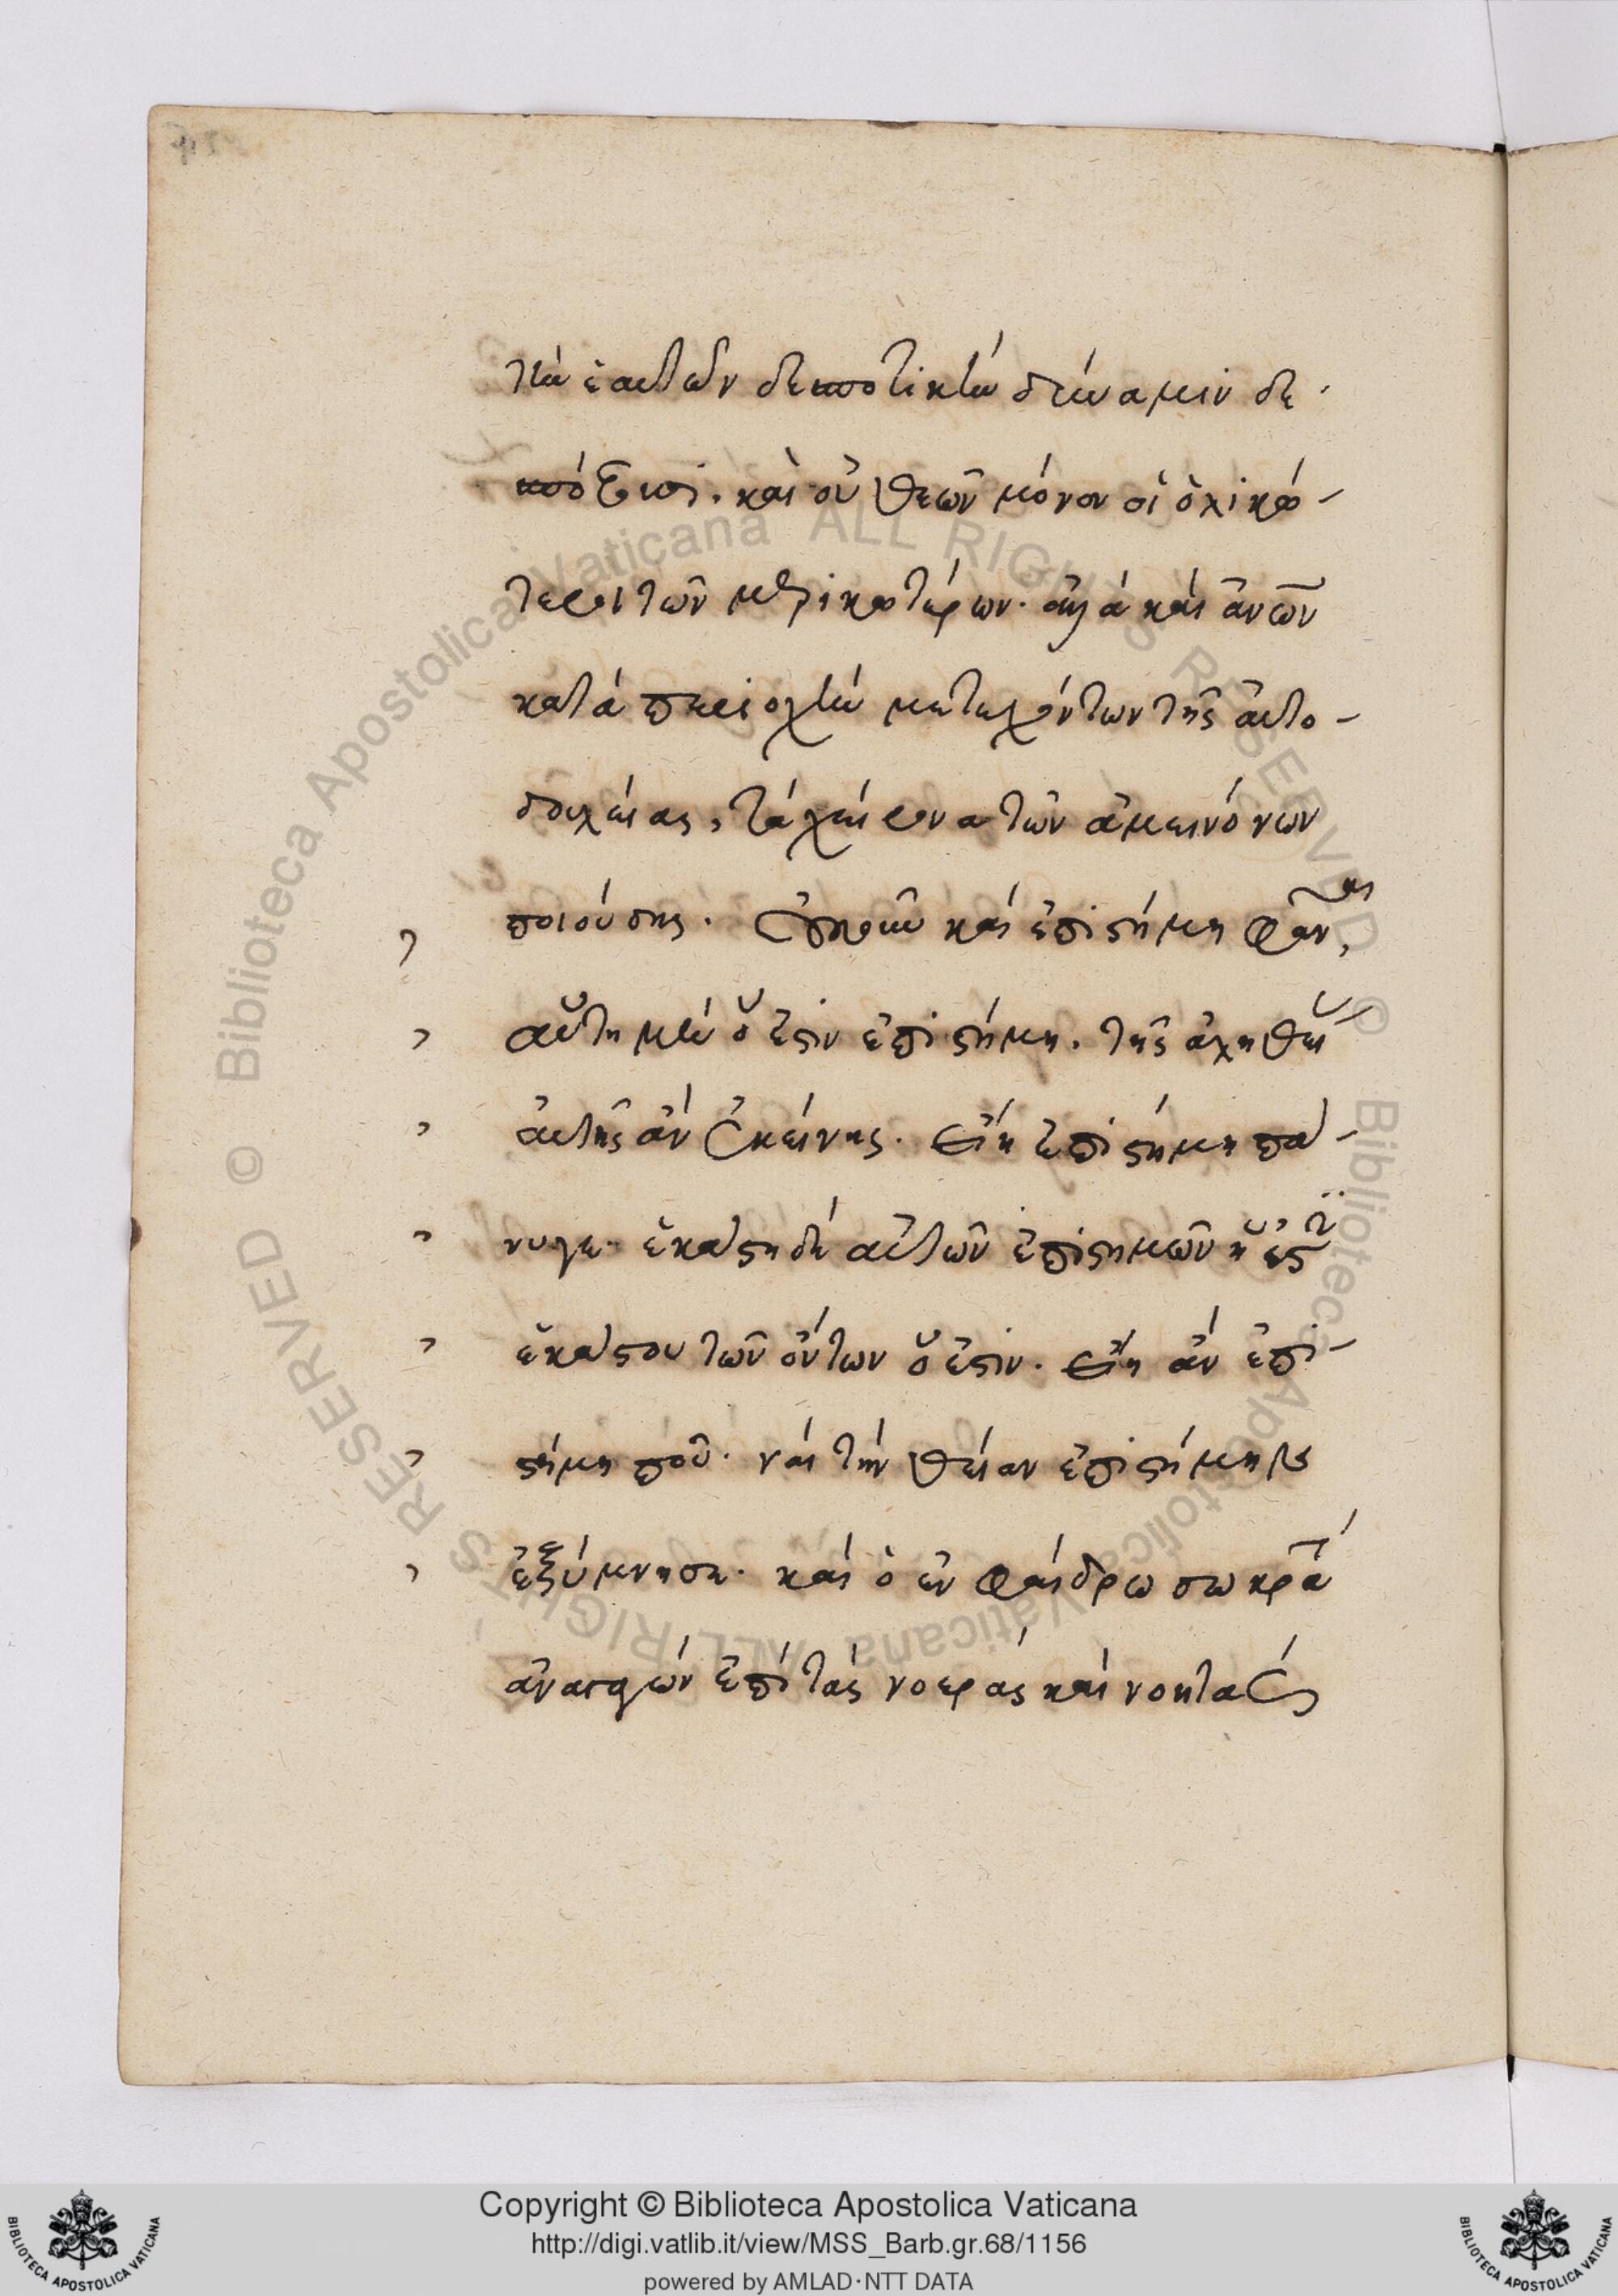 τὴν ἑαυτῶν δεσποτικὴν δύναμιν δε
σπόζουσι. καὶ οὐ θεῶν μόνον οἱ ὁλικώ-
τεροι τῶν μερικωτέρων. ἀλλὰ καὶ ἀνῶν
κατὰ περιοχὴν μετεχόντων τῆς αὐτο-
δουλείας, τὰ χείρονα τῶν ἀμεινόνων
ποιούσης. Οὐκοῦν καὶ ἐπιστήμη φάναι,
αὕτη μὲν ὅ ἐστιν ἐπιστήμη. τῆς ἀληθεί
αὐτῆς ἂν ἐκείνης. εἴη ἐπιστήμη πά-
νυγε. ἑκάστη δὲ αὐτῶν ἐπιστημῶν ἥ ἐστιν
ἑκάστου τῶν ὄντων ὅ ἐστιν. εἴη ἂν ἐπι-
στήμη που. ναὶ τὴν θείαν ἐπιστήμην
ἐξύμνησε. καὶ ὁ ἐν φαίδρω σωκρά
ἀναγαγὼν ἐπὶ τὰς νοερὰς καὶ νοητὰς
Copyright © Biblioteca Apostolica Vaticana
http://digi.vatlib.it/view/MSS_Barb.gr.68/1156
powered by AMLAD·NTT DATA